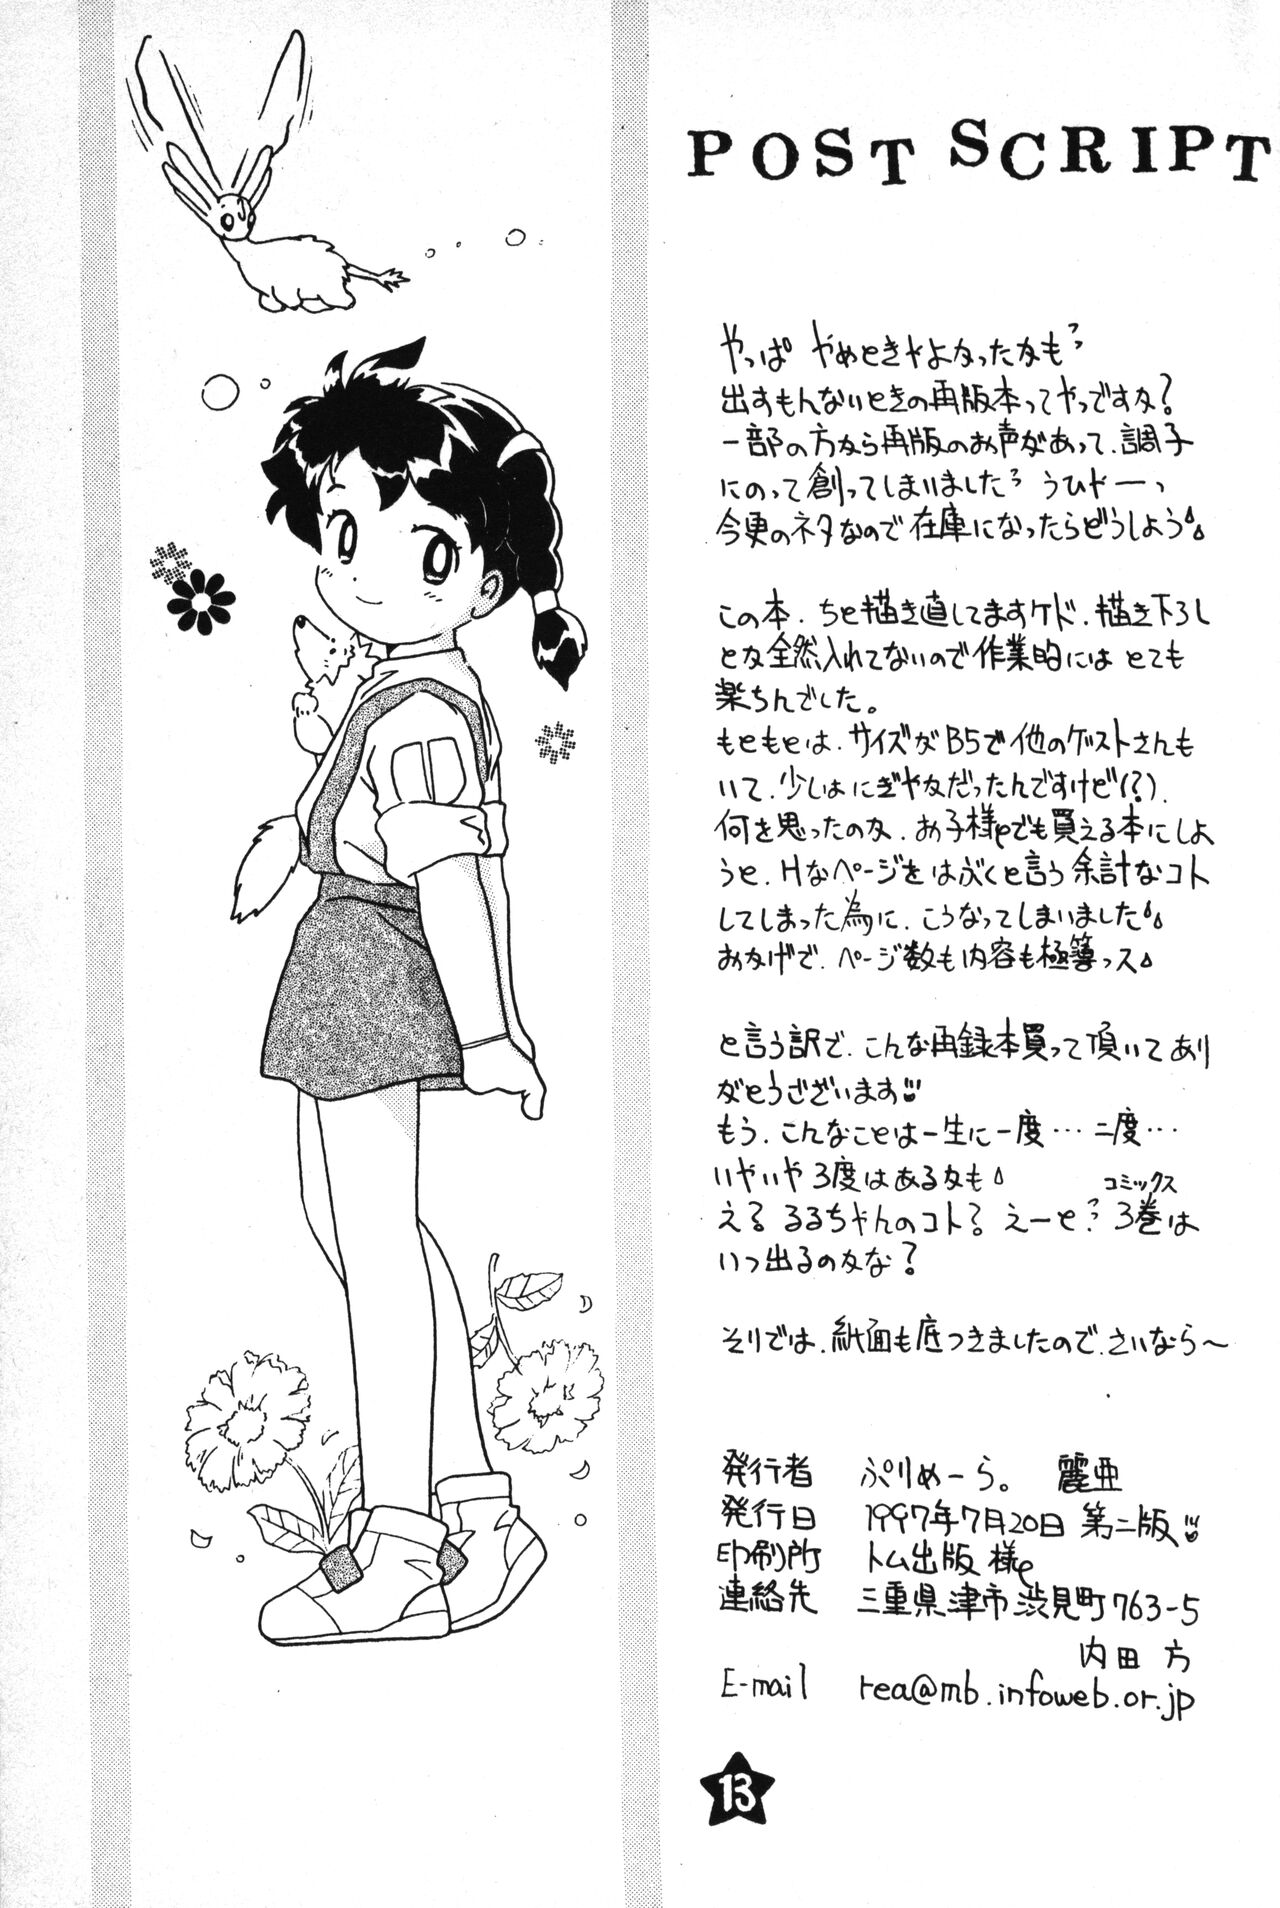 POST SCRIPT
やっぱ やめときゃよかったかも?
出すもんないときの再版本ってやつですな?
一部の方から再版のお声があって、調子
にのって創ってしまいました? うひドーっ
今更のネタなので在庫になったらどうしよう
この本、ちと描き直してますケド、描き下ろし
とか全然入れてないので作業的にはとても
楽ちんでした。
もともとは、サイズがB5で他のゲストさんも
いて、少しはにぎやかだったんですけど(?)、
何を思ったのか、お子様でも買える本にしよ
うと、Hなページをはぶくと言う余計なコト
してしまった為に、こうなってしまいました
おかげで、ページ数も内容も極薄っス
と言う訳で、こんな再録本買って頂いてあり
がとうございます
もう、こんなことは一生に一度…二度…
いやいや3度はあるかも
え? るるちゃんのコト? えーと? 3巻は
コミックス
いつ出るのかな?
そりでは、紙面も底つきましたので、さいなら〜
発行者 ぷりめーら。 麗亜
発行日 1997年7月20日 第二版
印刷所 トム出版 様
連絡先 三重県津市渋見町763-5
内田 方
E-mail rea@mb.infoweb.or.jp
13